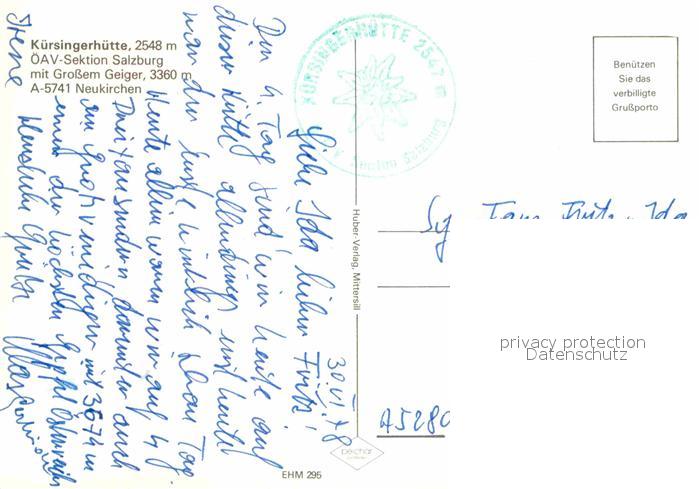 Kürsingerhütte, 2548 m
ÖAV-Sektion Salzburg
mit Großem Geiger, 3360 m
A-5741 Neukirchen
KÜRSINGERHÜTTE 2547 m
Sektion Salzburg
Benützen
Sie das
verbilligte
Grußporto
30. VI. 78
Liebe Ida lieber Fritz!
Den 4. Tag sind wir heute auf
dieser Hütte allerdings mit heute
war der erste wirklich schöne Tag.
Heute allein waren wir auf 4
Dreitausendern darunter auch
am Großvenediger mit 3674 m
einer der höchsten Gipfel Österreichs
Herzliche Grüße
Irene
Huber-Verlag, Mittersill
Fam. Fritz Ida
privacy protection
Datenschutz
A 5280
EHM 295